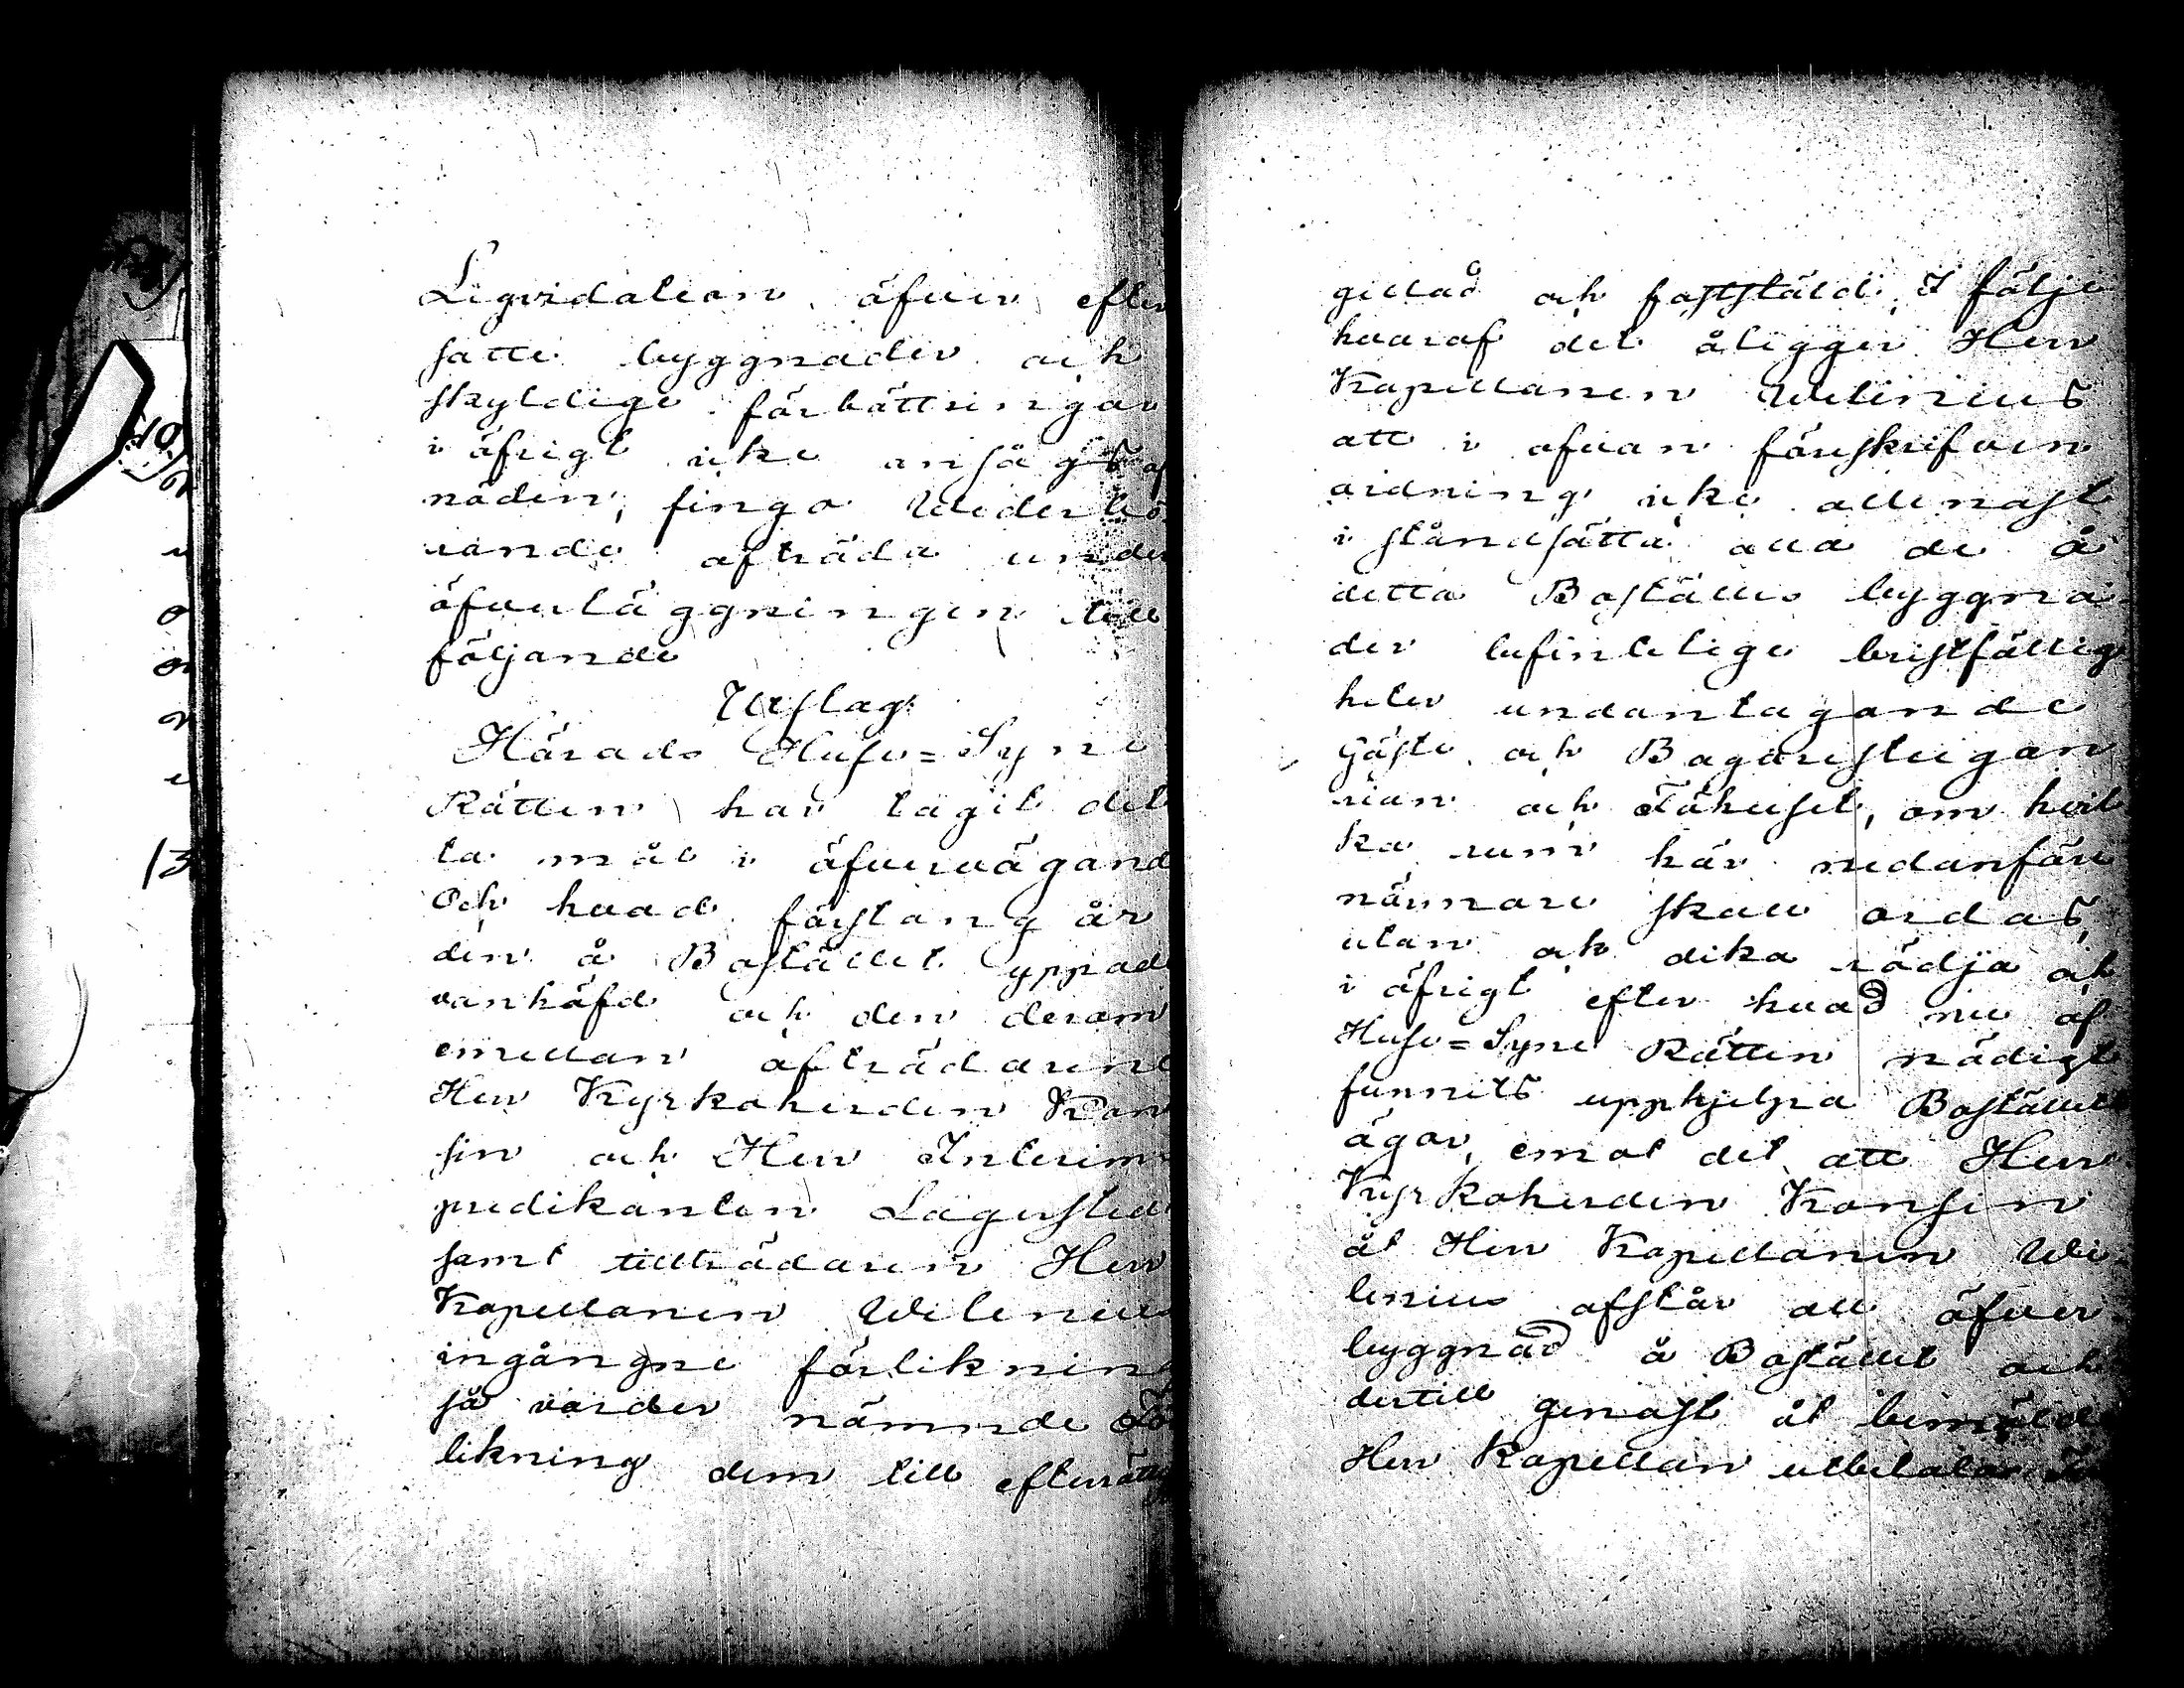 Liqvidation öfver efter
satte byggnader och
skyldige förbättringar
i öfrigt icke ansågs af
nöden, fingo Wederbö
rande afträda under
öfverläggningen till
följande
Utslag:
Härads Husе=Syne
Rätten har tagit det
ta mål i öfvervägand
Och hvad förslang är
den å Bostället yppade
vanhäfd och den derom
emellan afträdaren
Herr Kyrkoherden Kon
sin och Herr Interims
predikanten Lagersted
samt tillträdaren Herr
Kapellanen Welenius
ingångne förlikning
så varder nämnde För
likning dem till efterrätt
gillad och fastställd. I följe
hvaraf det åligger Herr
Kapellanen Welenius
att i ofvan föreskrifven
ordning icke allenast
i ståndsätta alla de å
detta Boställes byggna
der befintelige bristfällig
heter undantagande
Gäste och Bagarestugan
rian och Fähuset, om hvil
ka rum här nedanföre
närmare skall ordas,
utan ock dika rödja och
i öfrigt efter hvad nu af
Huse=Syne Rätten nödigt
funnits upphjelpa Boställets
ägor, emot det att Herr
Kyrkoherden Konsin
åt Herr Kapellanen We
lenius afstår all öfver
byggnad å Bostället och
dertill genast åt bemälde
Herr Kapellan utbetalar